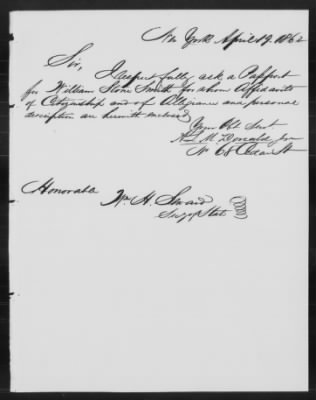 New York April 19. 1862
Sir,
I respectfully ask a Passport
for William Stone Smith for whom Affidavits
of Citizenship and of Allegiance and personal
description are herewith enclosed
Your Obt Servt
A McDonald Jnr
No 68 Cedar St
Honorable
Wm H. Seward
Secy of State